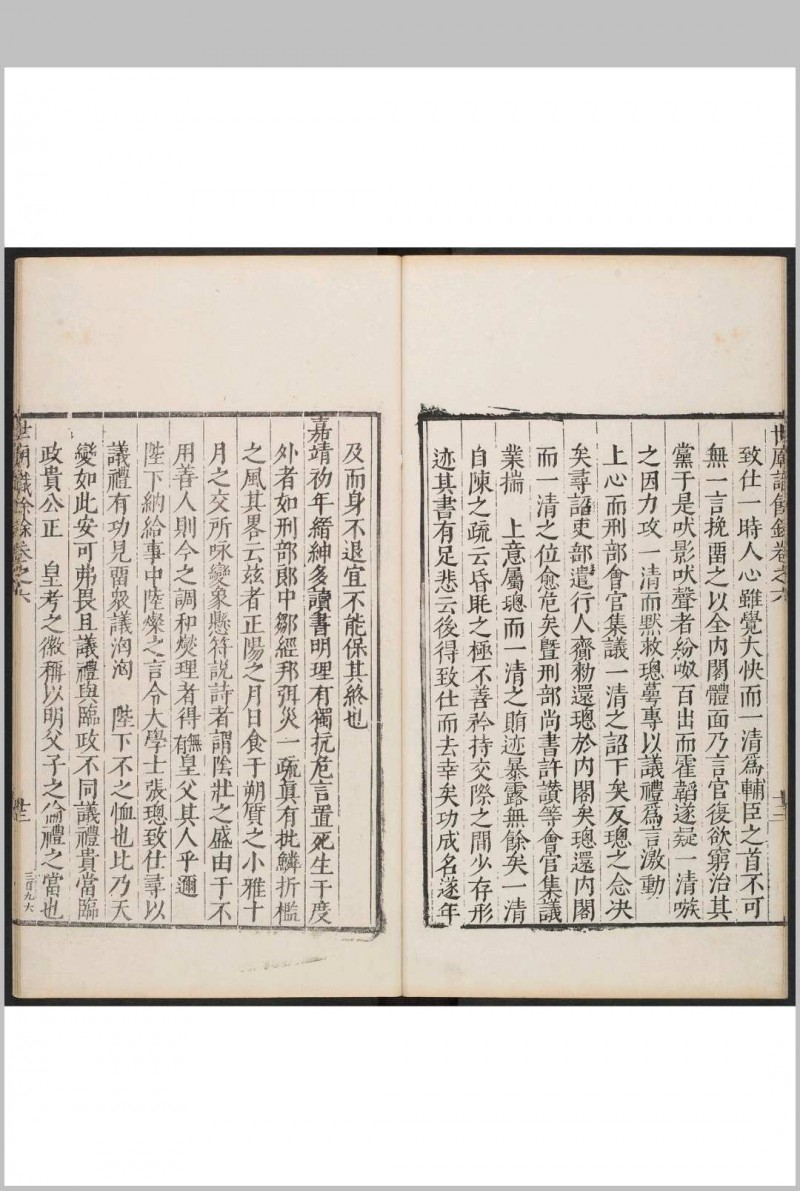 世廟識餘錄卷之六
致仕一時人心雖覺大快而一清爲輔臣之首不可
無一言挽畱之以全內閣體面乃言官復欲窮治其
黨于是吠影吠聲者紛呶百出而霍韜遂疑一清嗾
之因力攻一清而黙救璁蕚專以議禮爲言激動
上心而刑部會官集議一清之詔下矣反璁之念决
矣尋詔吏部遣行人齎勑還璁於內閣矣璁還內閣
而一清之位愈危矣曁刑部尚書許讃等會官集議
業揣　上意屬璁而一清之賄迹暴露無餘矣一清
自陳之疏云昏眊之極不善矜持交際之間少存形
迹其書有足悲云後得致仕而去幸矣功成名遂年
及而身不退宜不能保其終也
嘉靖初年縉紳多讀書明理有獨抗危言置死生于度
外者如刑部郎中鄒經邦弭災一疏眞有批鱗折檻
之風其畧云兹者正陽之月日食于朔質之小雅十
月之交所咏變象懸符説詩者謂陰壯之盛由于不
用善人則今之調和燮理者得無有皇父其人乎邇
陛下納給事中陸燦之言令大學士張璁致仕尋以
議禮有功見畱衆議洶洶　陛下不之恤也比乃天
變如此安可弗畏且議禮與臨政不同議禮貴當臨
政貴公正　皇考之徽稱以明父子之倫禮之當也
世廟識餘錄卷之六
三百九六